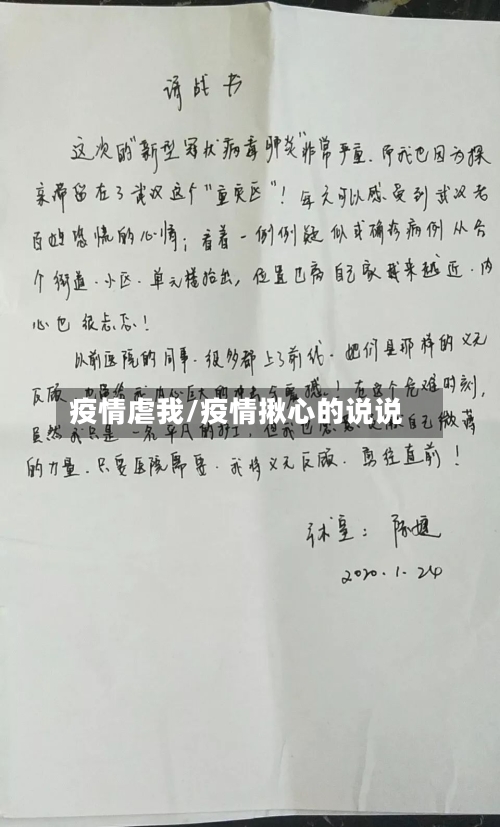 请战书
这次的"新型冠状病毒肺炎"非常严重.而我也因为探
亲滞留在了武汉这个"重灾区"！每天可以感受到武汉老
百姓恐慌的心情；看着一例例疑似或确诊病例从各
个街道.小区.单元楼抬出，位置也离自己家越来越近.内
心也很忐忑！
以前医院的同事.很多都上了前线.她们是那样的义无
反顾
疫情虐我/疫情揪心的说说
！在这个危难时刻，
虽然我只是一名平凡的护士，但我也愿意
自己微薄
的力量.只要医院需要.我将义无反顾.勇往直前！
陈
2020.1.24